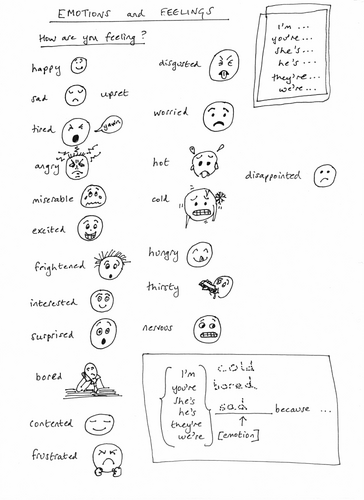 EMOTIONS and FEELINGS
How are you feeling?
I'm ...
you're ...
she's ...
he's ...
they're ...
we're ...
happy
sad
upset
tired
yawn
angry
miserable
excited
frightened
interested
surprised
bored
contented
frustrated
disgusted
worried
hot
cold
hungry
thirsty
nervous
disappointed
I'm
you're
she's
he's
they're
we're
cold
bored
sad because ...
[emotion]